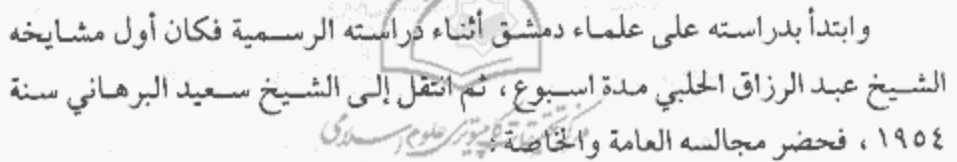 وابتدأ بدراسته على علماء دمشق أثناء دراسته الرسمية فكان أول مشايخه
الشيخ عبد الرزاق الحلبي مدة اسبوع ، ثم انتقل إلى الشيخ سعيد البرهاني سنة
١٩٥٤ ، فحضر مجالسه العامة والخاصة :